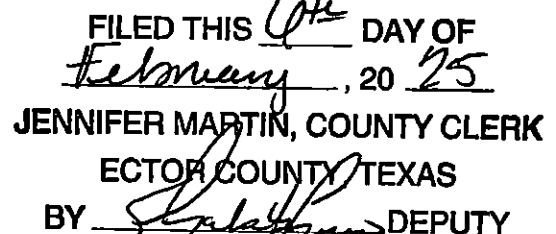 FILED THIS 6th DAY OF
February, 20 25
JENNIFER MARTIN, COUNTY CLERK
ECTOR COUNTY TEXAS
BY DEPUTY